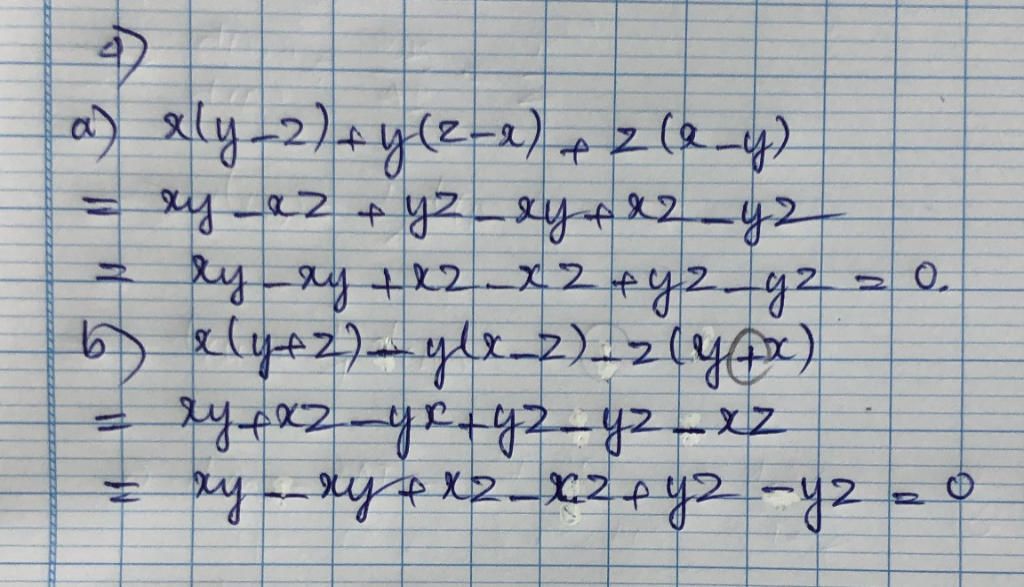 4)
a) x(y-z)+y(z-x)+z(x-y)
= xy-xz+yz-xy+xz-yz
= xy-xy+xz-xz+yz-yz=0.
b) x(y+z)-y(x-z)-z(y+x)
= xy+xz-yx+yz-yz-xz
= xy-xy+xz-xz+yz-yz=0